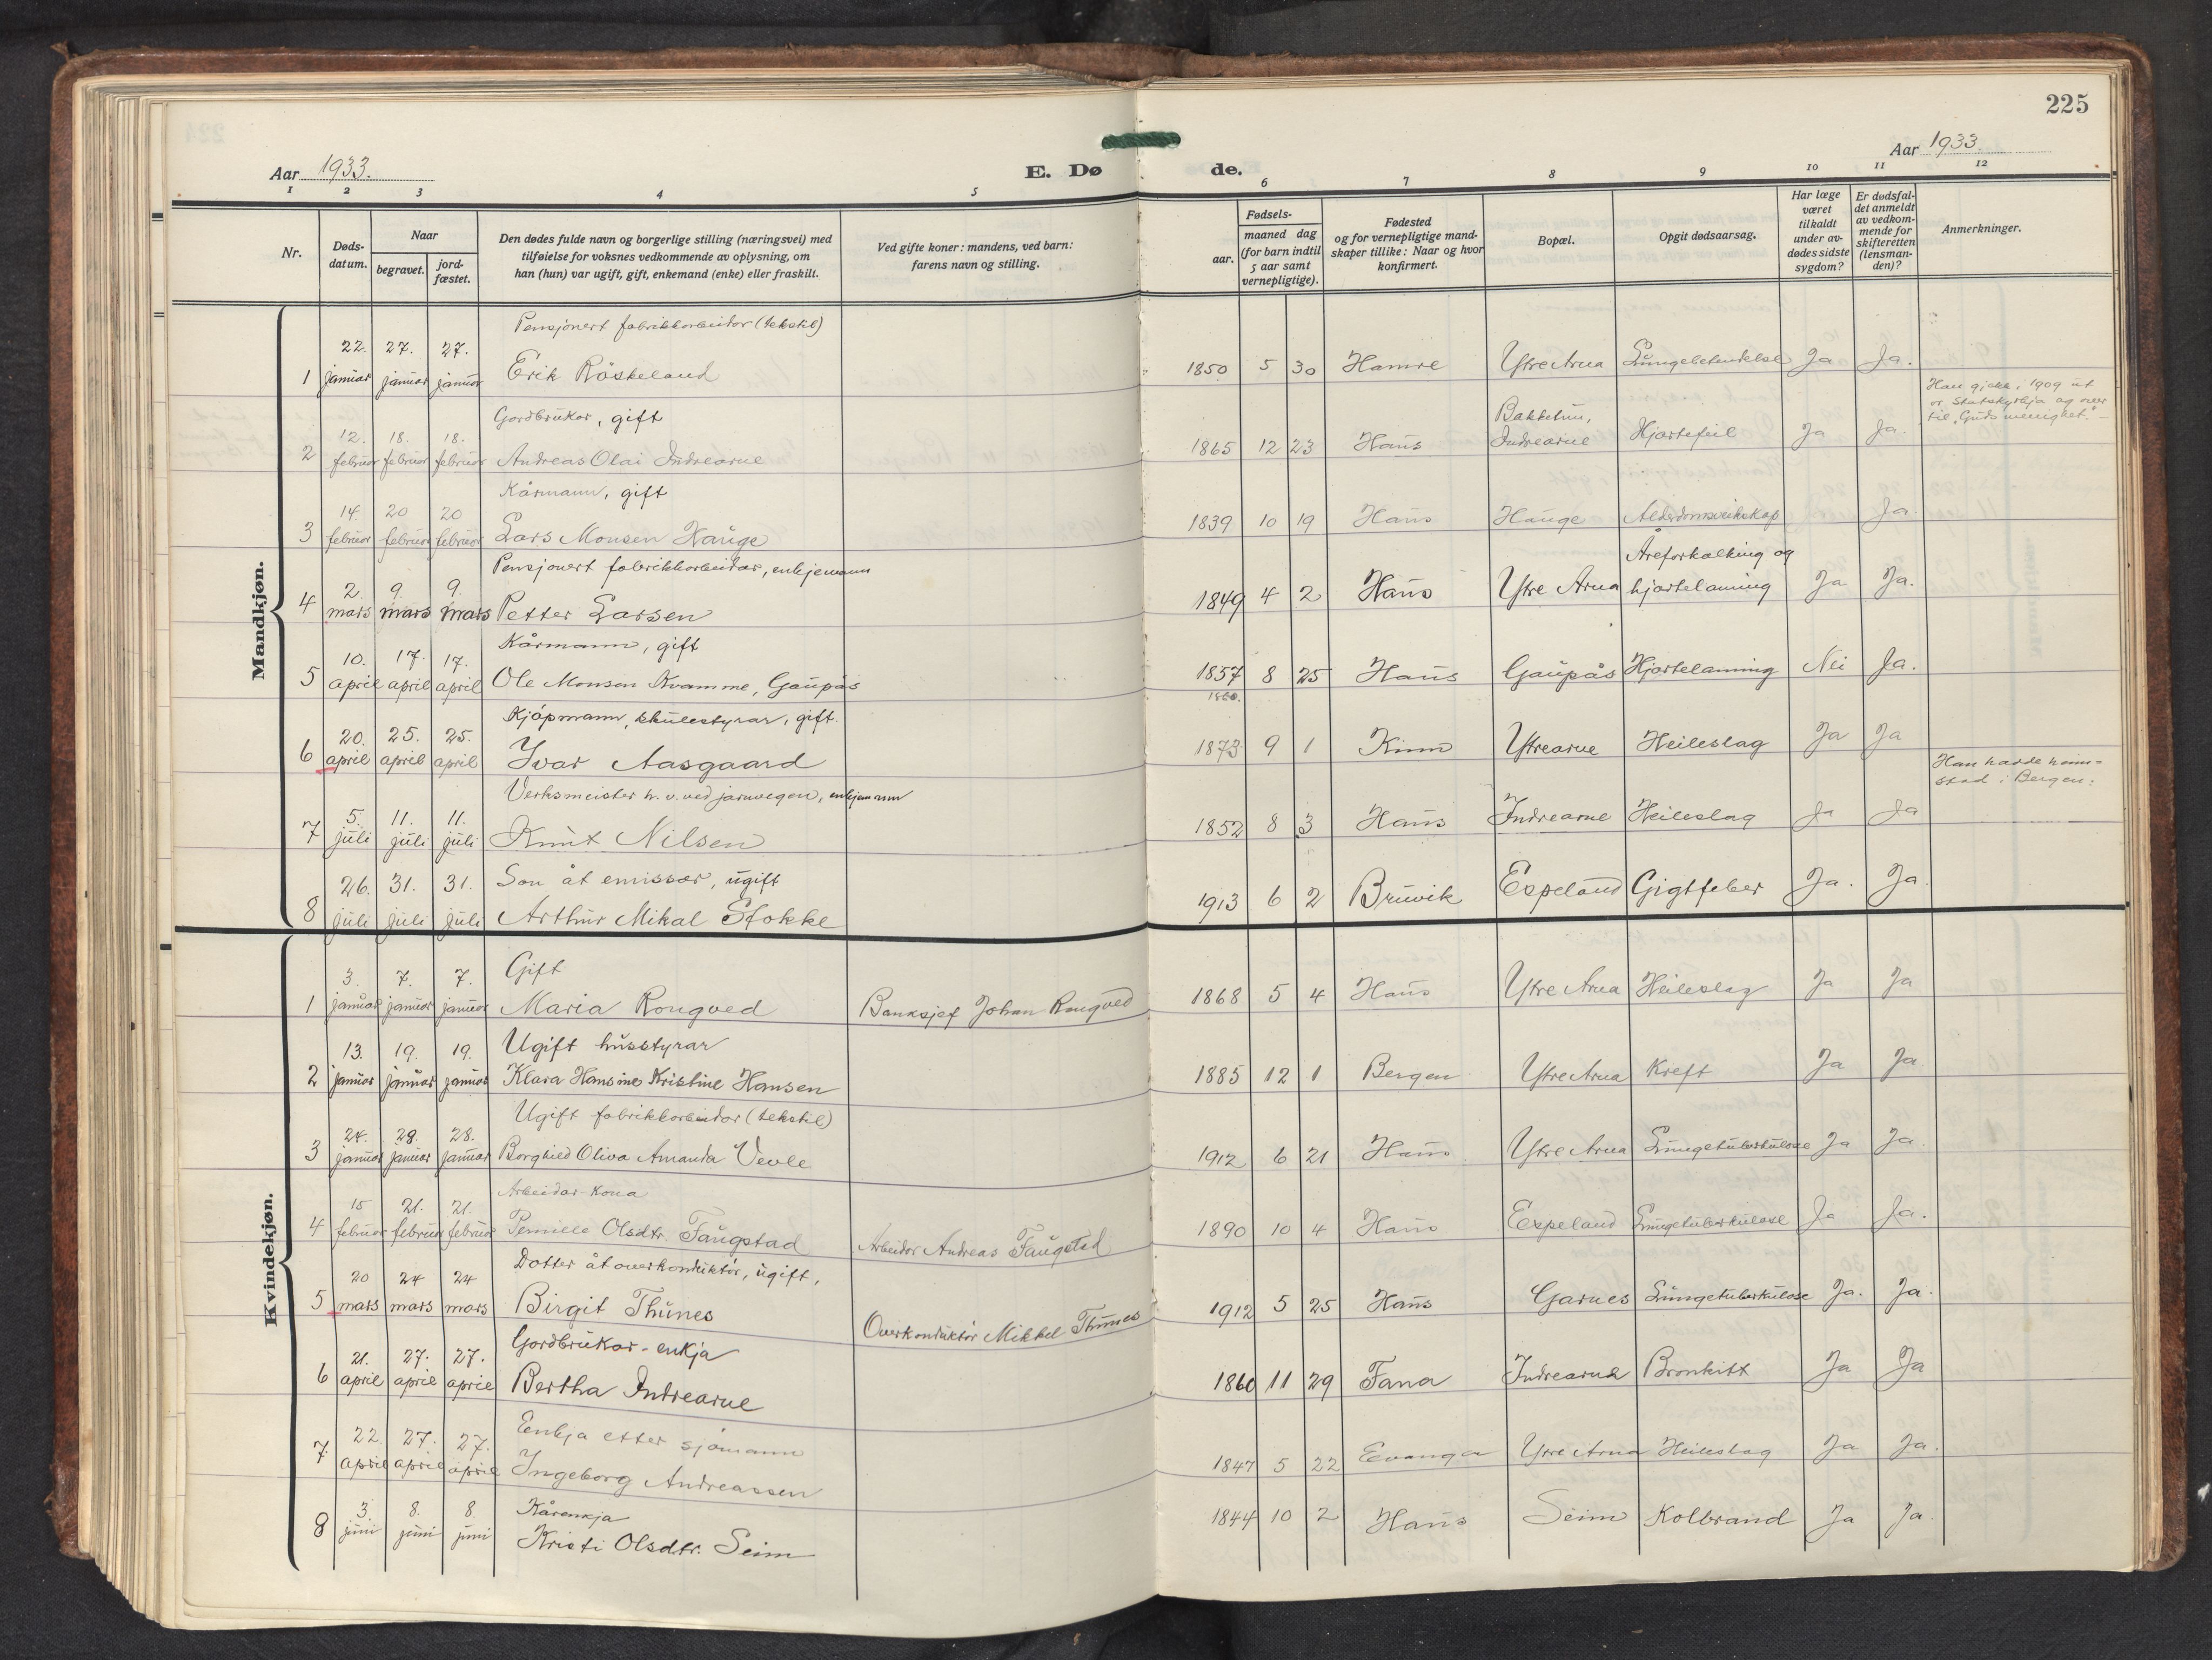 225
Aar 1933.
E. Døde.
Aar 1933.
1 2 3 4 5 6 7 8 9 10 11 12
Nr.
Døds-
datum.
Naar
begravet.
jord-
fæstet.
Den dødes fulde navn og borgerlige stilling (næringsvei) med
tilføielse for voksnes vedkommende av oplysning, om
han (hun) var ugift, gift, enkemand (enke) eller fraskilt.
Ved gifte koner: mandens, ved barn:
farens navn og stilling.
Fødsels-
aar.
maaned dag
(for barn indtil
5 aar samt
vernepligtige).
Fødested
og for vernepligtige mand-
skaper tillike: Naar og hvor
konfirmert.
Bopæl.
Opgit dødsaarsag.
Har læge
været
tilkaldt
under av-
dødes sidste
sygdom?
Er dødsfal-
det anmeldt
av vedkom-
mende for
skifteretten
(lensman-
den)?
Anmerkninger.
Mandkjøn.
Pensjonert fabrikkarbeidar (tekstil)
1 22. januar 27. januar 27. januar Erik Röskeland 1850 5 30 Hamre Ytre Arna Lungebetendelse Ja Ja.
Gardbrukar, gift
2 12. februar 18. februar 18. februar Andreas Olai Indrearne 1865 12 23 Haus Bakketun, Indrearne Hjartefeil Ja Ja.
Han gjekk i 1909 ut
or Statskyrkja og over
til "Guds menighet." -
Kårmann, gift
3 14. februar 20 februar 20 februar Lars Monsen Hauge 1839 10 19 Haus Hauge Alderdomsveikskap Ja.
Pensjonert fabrikkarbeidar, enkjemann
4 2. mars 9. mars 9. mars Petter Larsen 1849 4 2 Haus Ytre Arna Åreforkalking og hjartelaming Ja Ja.
Kårmann, gift
5 10. april 17. april 17. april Ole Monsen Kvamme, Gaupås 1857 8 25 Haus Gaupås Hjartelamming Nei Ja.
Kjöpmann, skulestyrar, gift.
6 20. april 25. april 25. april Ivar Aasgaard 1873 9 1 Kinn Ytrearne Heileslag Ja Ja
Verksmeister h. v. ved jarnvegen, enkjemann
7 5. juli 11. juli 11. juli Knut Nilsen 1852 8 3 Haus Indrearne Heileslag Ja Ja
Han hadde heim-
stad i Bergen.
Son åt emissær, ugift
8 26. juli 31. juli 31. juli Arthur Mikal Stokke 1913 6 2 Bruvik Espeland Gigtfeber Ja. Ja
Kvindekjøn.
Gift
1 3. januar 7. januar 7. januar Maria Rongved Banksjef Johan Rongved 1868 5 4 Haus Ytre Arna Heileslag Ja Ja
Ugift husstyrar
2 13. januar 19. januar 19. januar Klara Hansine Kristine Hansen 1885 12 1 Bergen Ytre Arna Kreft Ja Ja
Ugift fabrikkarbeidar (tekstil)
3 24. januar 28. januar 28. januar Borghild Oliva Amanda Vevle 1912 6 21 Haus Ytre Arna Lungetuberkulose Ja Ja.
Arbeidar-kona
4 15 februar 21. februar 21. februar Pernille Olsdtr. Faugstad Arbeidar Andreas Faugstad 1890 10 4 Haus Espeland Lungetuberkulose Ja Ja.
Dotter åt overkonduktör, ugift,
5 20 mars 24 mars 24 mars Birgit Thunes Overkonduktör Mikkel Thunes 1912 5 25 Haus Garnes Lungetuberkulose Ja. Ja.
Gardbrukar-enkja
6 21. april 27. april 27. april Bertha Indrearne 1860 11 29 Fana Indrearne Bronkitt Ja Ja
Enkja etter sjömann
7 22. april 27. april 27. april Ingeborg Andreassen 1847 5 22 Evanger Ytre Arna Heileslag Ja Ja.
Kårenkja
8 3. juni 8. juni 8. juni Kristi Olsdtr. Seim 1844 10 2 Haus Seim Kolbrand Ja Ja.